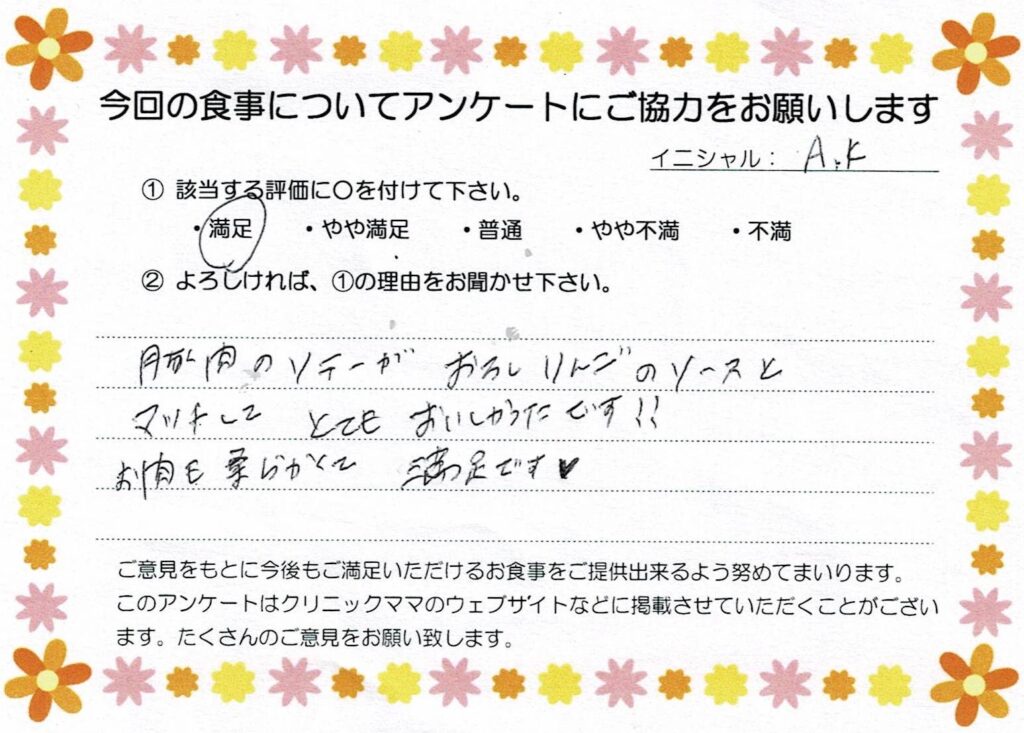 今回の食事についてアンケートにご協力をお願いします
イニシャル： A.K
① 該当する評価に〇を付けて下さい。
・満足 ・やや満足 ・普通 ・やや不満 ・不満
② よろしければ、①の理由をお聞かせ下さい。
豚肉のソテーが おろしりんごのソースと
マッチして とても おいしかったです!!
お肉も柔らかくて 満足です♥
ご意見をもとに今後もご満足いただけるお食事をご提供出来るよう努めてまいります。
このアンケートはクリニックママのウェブサイトなどに掲載させていただくことがござい
ます。たくさんのご意見をお願い致します。